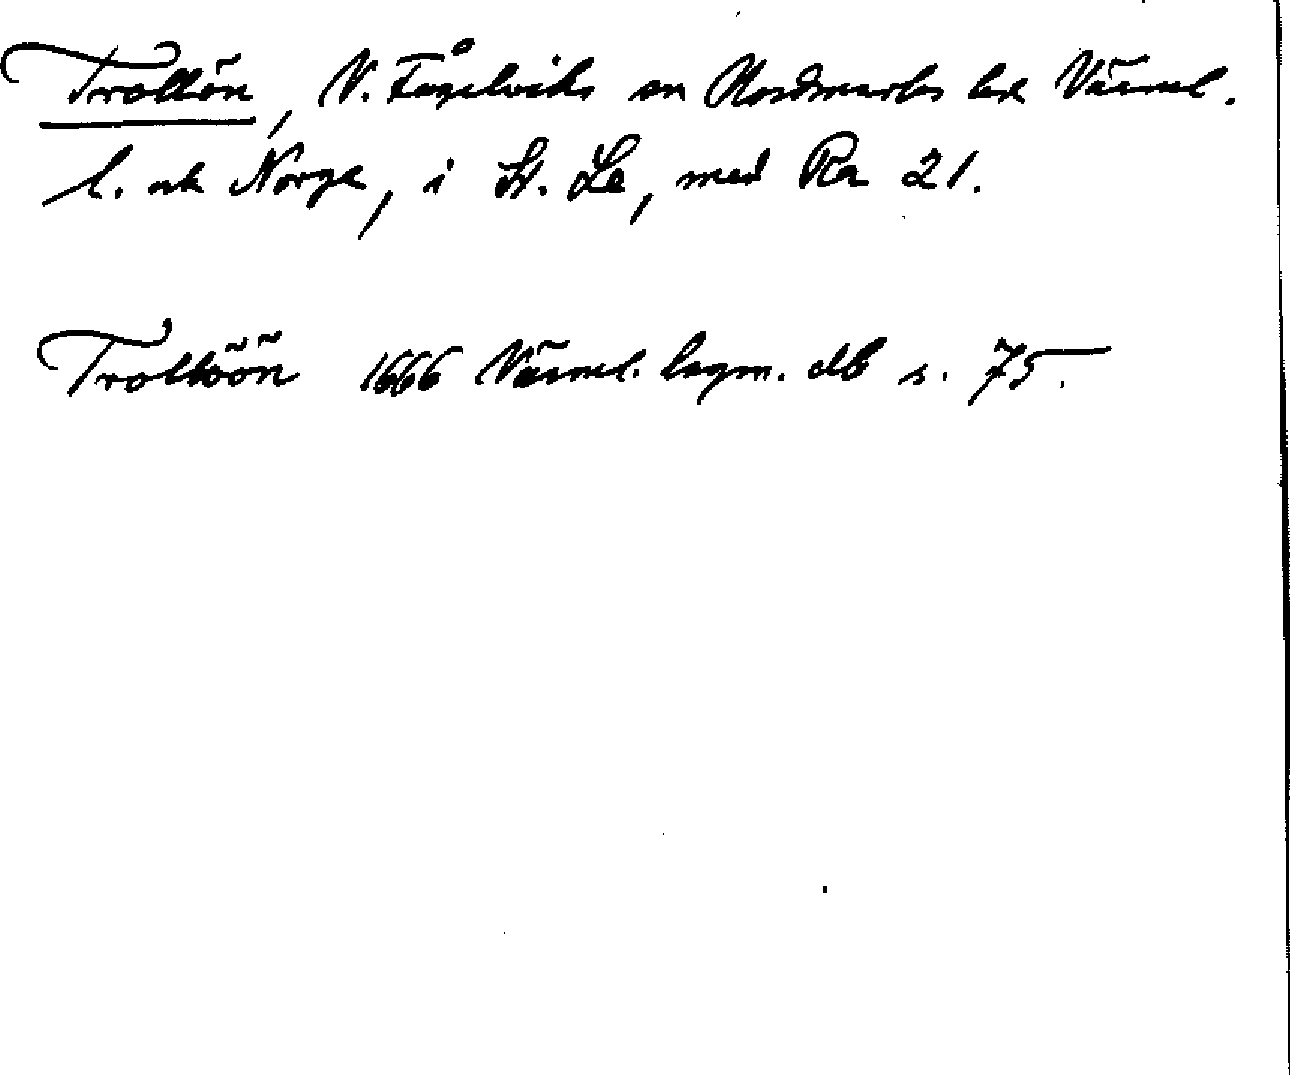 Trollön, V. Fågelviks sn Nordmarks hd Värml.
l. och Norge, i St. Le, med Ra 21.
Trollöön 1666 Värml. lagm. db s. 75.